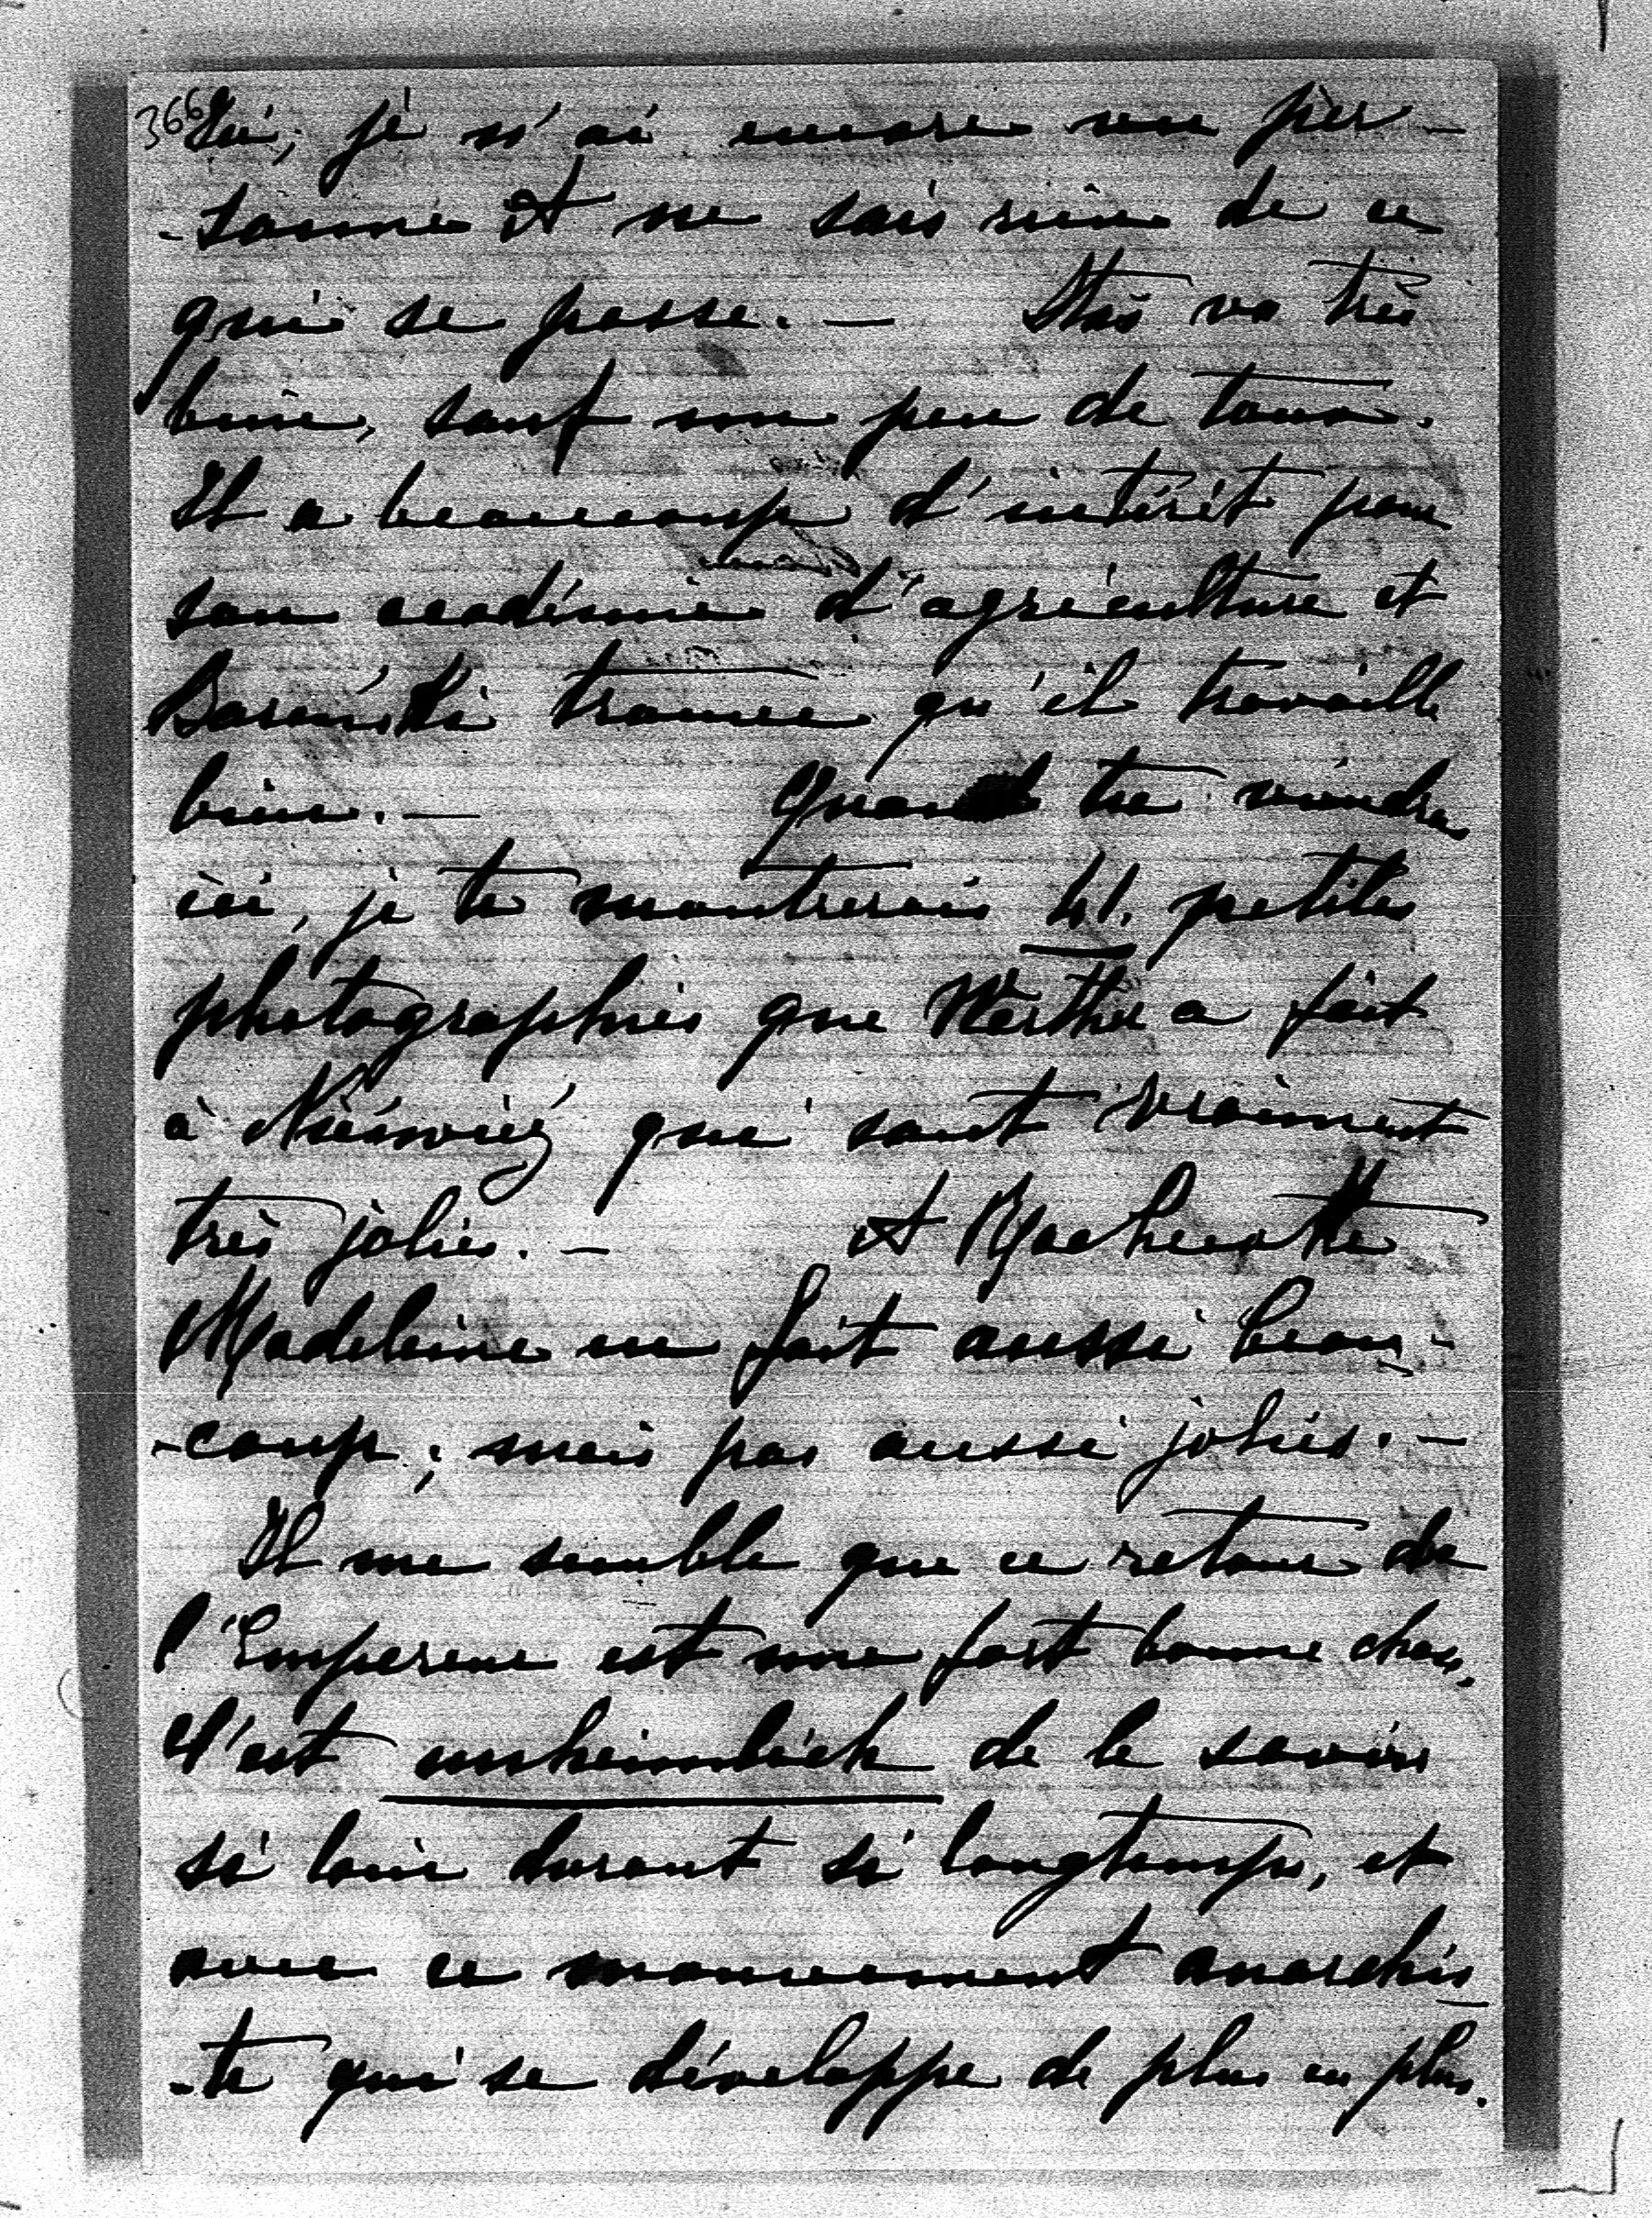 366
Ici, je n'ai encore vu per-
-sonne et ne sais rien de ce
qui se passe. — Stas va très
bien, sauf un peu de toux.
Il a beaucoup d'intérêt pour
son académie d'agriculture et
trouve qu'il travaille
bien. — Quand tu viendras
ici, je te montrerais 41. petites
photographies que a fait
à Nieświéz qui sont vraiment
très jolies. — A
Madeleine en fait aussi beau-
-coup; mais pas aussi jolies. —
Il me semble que ce retour de
l'Empereur est une fort bonne chose,
c'est unheimlich de le savoir
si loin durant si longtemps, et
avec ce mouvement anarchis
-te qui se développe de plus en plus.